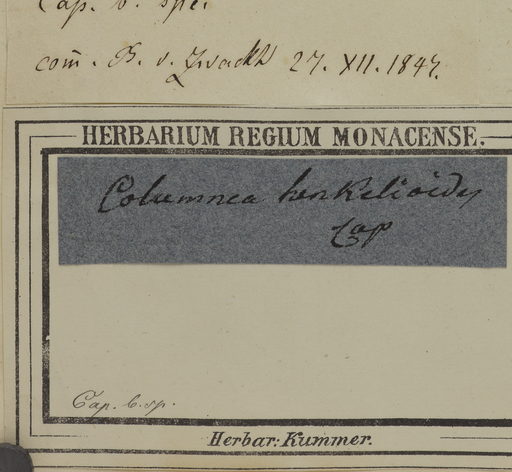 Cap. b. spei
com̄. B. v. Zwackh 27. XII. 1847.
HERBARIUM REGIUM MONACENSE.
Columnea
Cap
Cap. b. sp.
Herbar: Kummer.